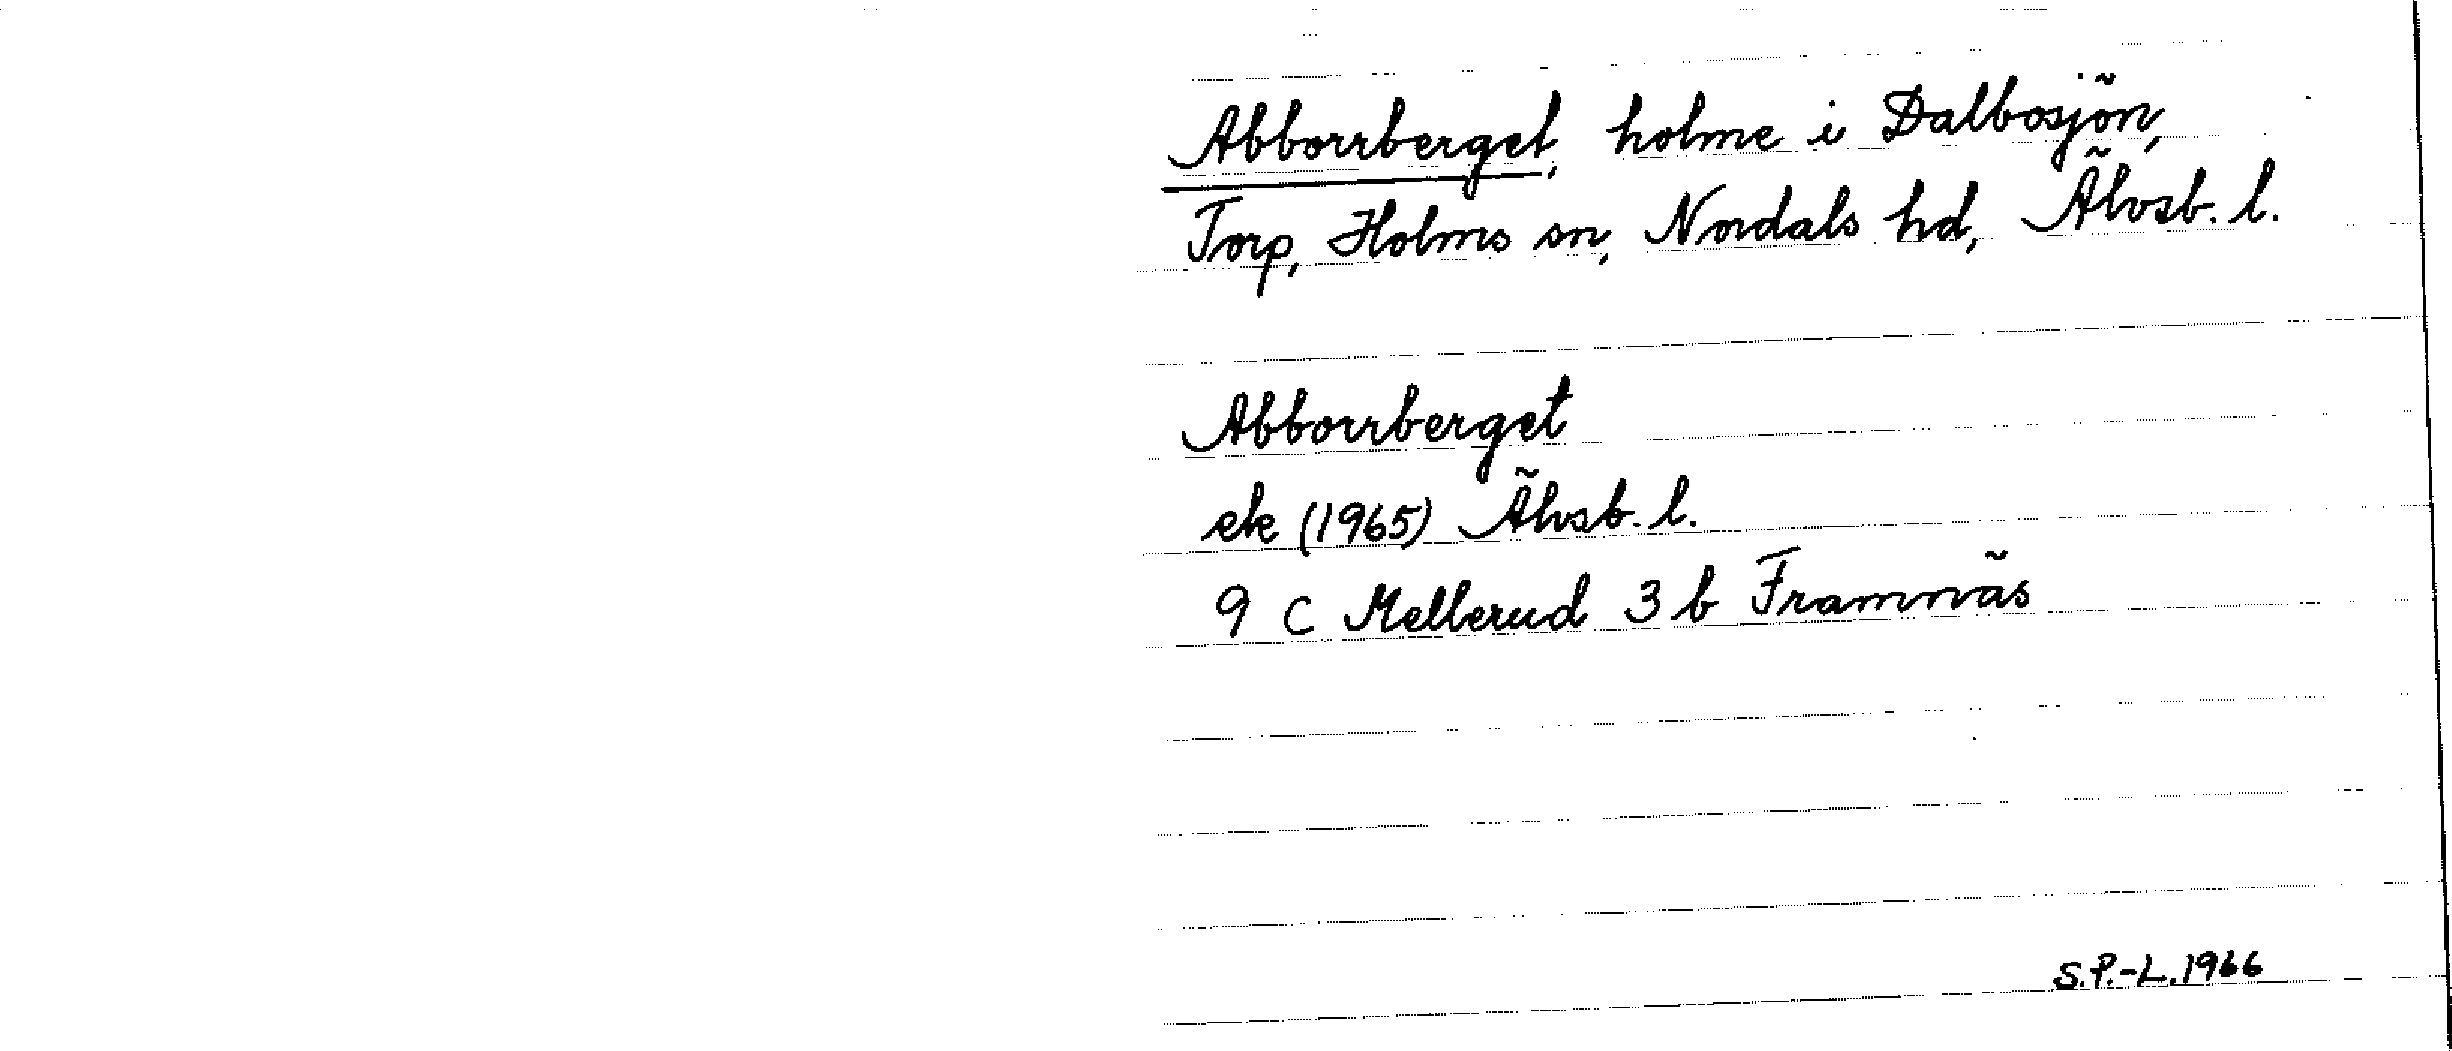 Abborrberget, holme i Dalbosjön,
Torp, Holms sn, Nordals hd, Älvsb. l.
Abborrberget
ek (1965) Älvsb. l.
9 C Mellerud 3 b Framnäs
S.P.-L. 1966